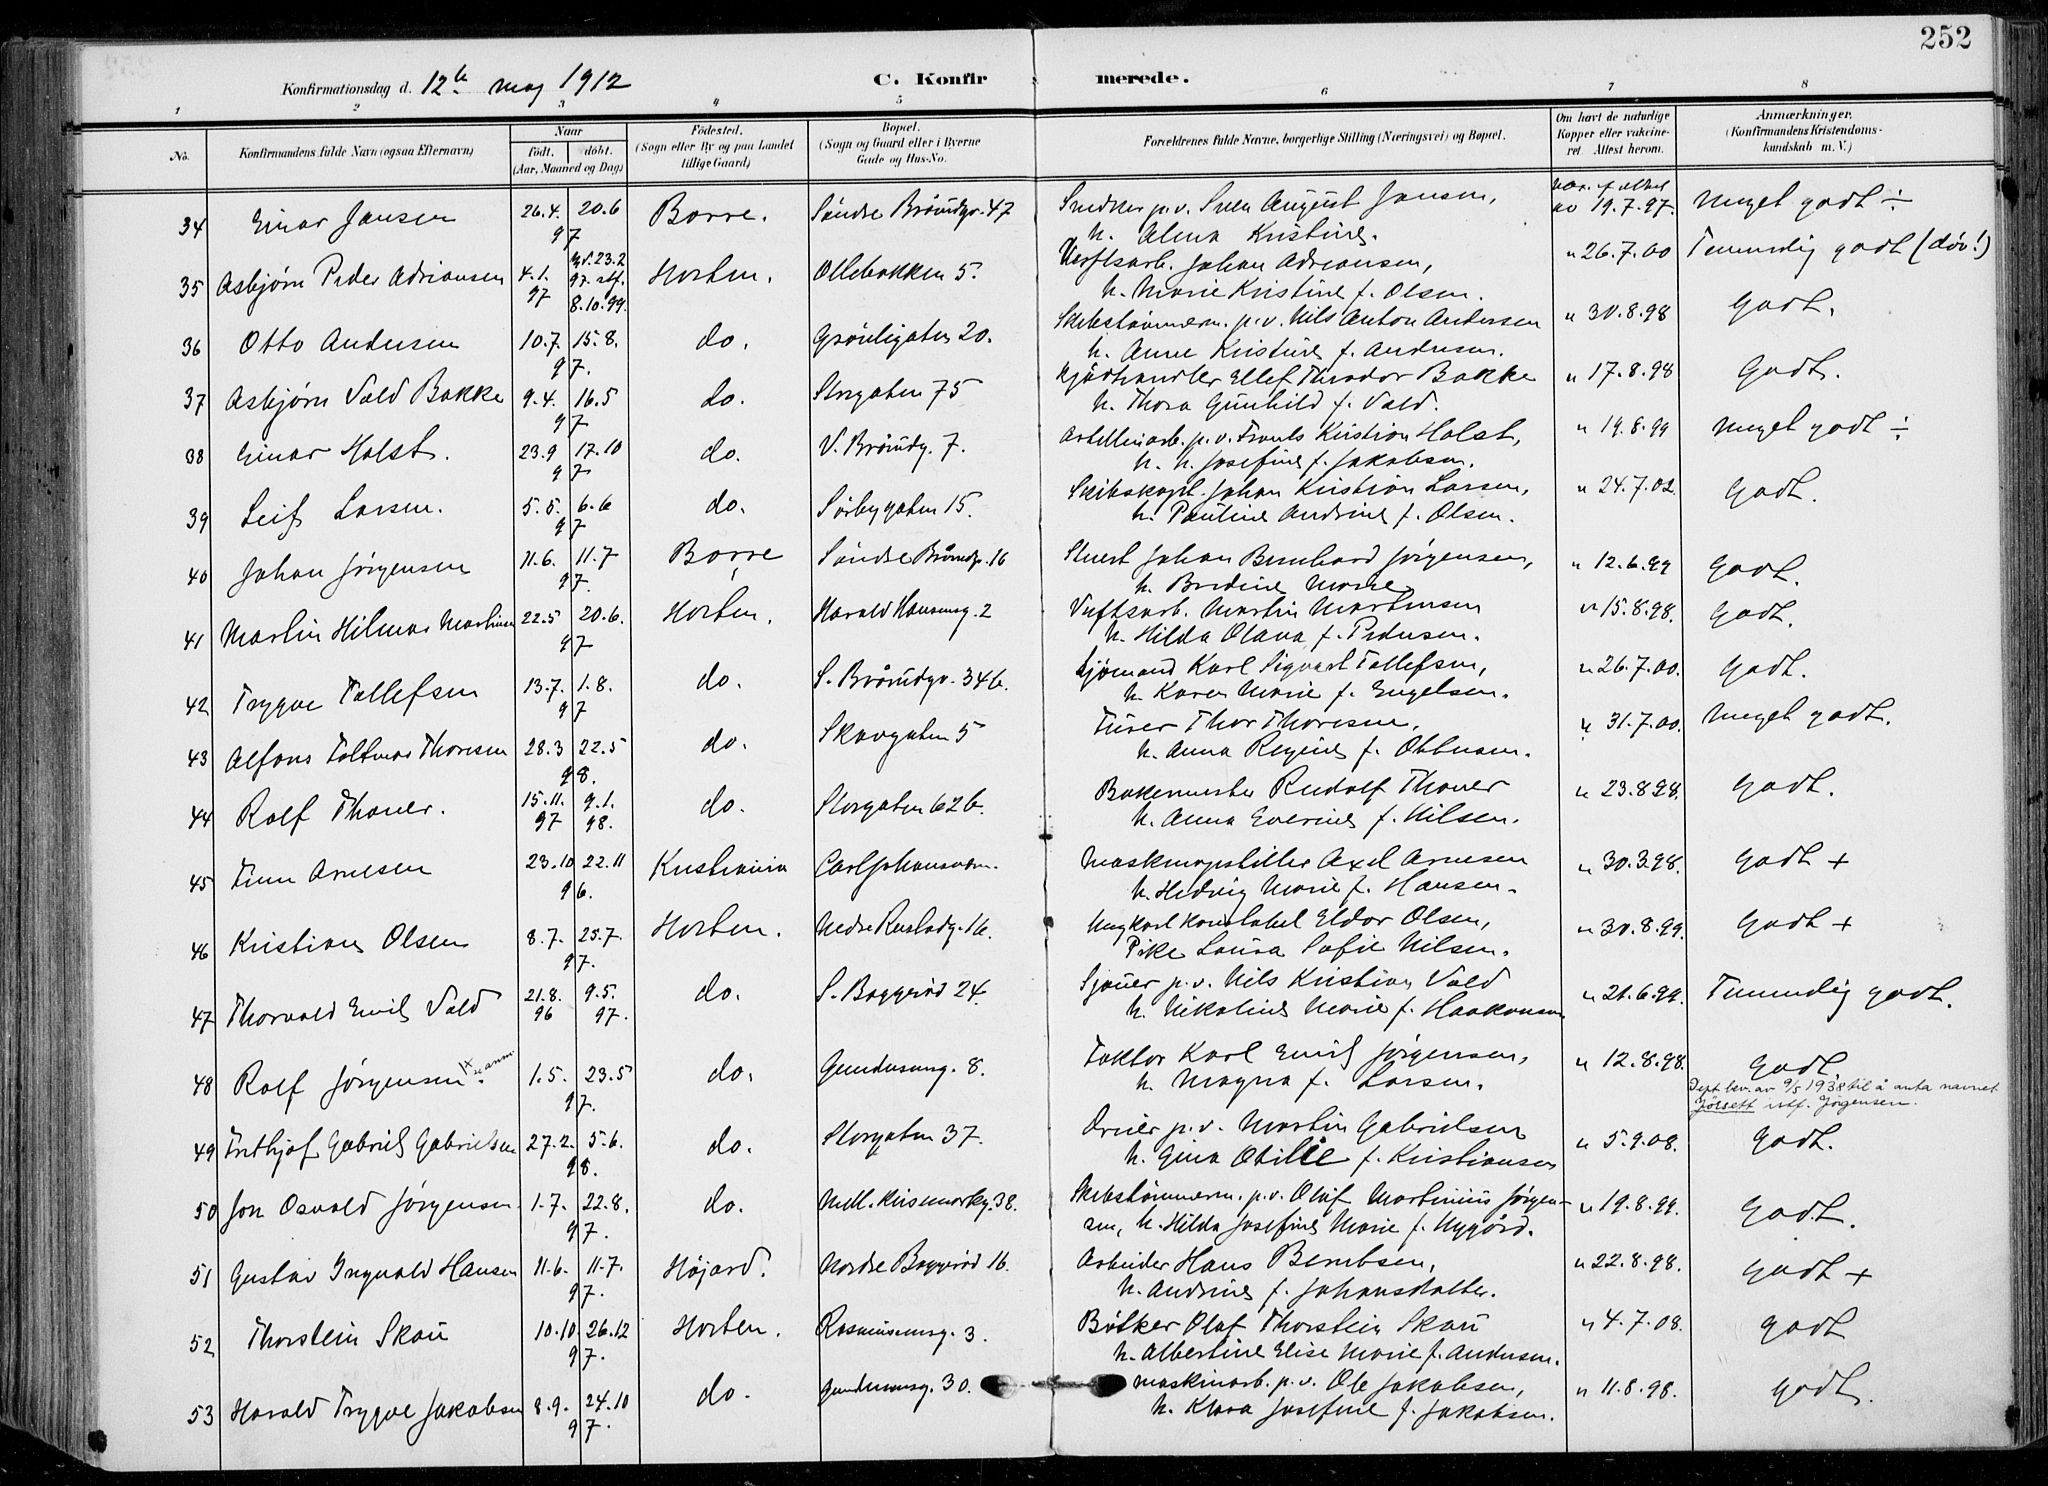 252
Konfirmationsdag d. 12te maj 1912 C. Konfirmerede.
1 2 3 4 5 6 7 8
No. Konfirmandens fulde Navn (ogsaa Efternavn) Naar født. døbt. (Aar, Maaned og Dag) Fødested. (Sogn eller By og paa Landet tillige Gaard) Bopæl. (Sogn og Gaard eller i Byerne Gade og Hus-No. Forældrenes fulde Navne, borgerlige Stilling (Næringsvei) og Bopæl. Om havt de naturlige Kopper eller vakcineret. Attest herom. Anmærkninger. (Konfirmandens Kristendomskundskab m. V.)
34 Einar Jansen 26.4. 20.6 97 Borre. Søndre Brårudgr. 47 Snedker p.v. Sven August Jansen, h. Alma Kristine. vac. if. attest av 19.7.97. Meget godt ÷
35 Asbjørn Peder Adriansen 4.1. 97 23.2 97. stf. 8.10.99. Horten. Ollebakken 5. Verftsarb. Johan Adriansen, h. Marie Kristine f. Olsen. " 26.7.00 Temmelig godt (døv!)
36 Otto Andersen 10.7. 15.8. 97. do. Grønligaten 20. Skibstømmerm. p.v. Nils Anton Andersen h. Anne Kristine f. Andersen. " 30.8.98 Godt.
37 Asbjørn Vold Bakke 9.4. 16.5 97 do. Storgaten 75 Kjødhandler Ellef Theodor Bakke h. Thora Gunhild f. Vold. " 17.8.98 Godt.
38 Einar Holst. 23.9 17.10 97 do. V. Brårudg. 7. Artilleriarb. p.v. Frants Kristian Holst, h. h. Josefine f. Jakobsen. " 19.8.99 Meget godt ÷
39 Leif Larsen. 5.5. 6.6 97 do. Sørbygaten 15. Skibskapt. Johan Kristian Larsen, h. Pauline Andrine f. Olsen. " 24.7.02. Godt.
40 Johan Jørgensen 11.6. 11.7 97. Borre Søndre Brårudgr. 16 Stuert Johan Bernhard Jørgensen, h. Bredine Marie " 12.6.99 Godt.
41 Martin Hilmar Martinsen 22.5 20.6. 97 Horten. Harald Hansensg. 2 Verftsarb. Martin Martinsen h. Hilda Olava f. Pedersen. " 15.8.98. Godt.
42 Trygve Tollefsen 13.7. 1.8. 97 do. S. Brårudgr. 34b. Sjømand Karl Sigvart Tollefsen, h. Karen Marie f. Engelsen. " 26.7.00. Godt.
43 Alfons Toltmar Thoresen 28.3 22.5 98. do. Skavgaten 5 Türer Thor Thoresen, h. Anna Regine f. Ottersen. " 31.7.00. Meget godt.
44 Rolf Thaner. 15.11. 97 9.1. 98. do. Storgaten 62b. Bakermester Rudolf Thaner h. Anna Everine f. Nilsen. " 23.8.98. Godt.
45 Finn Arnesen 23.10 22.11 96. Kristiania Carljohansvern. Maskinopstiller Axel Arnesen h. Hedvig Marie f. Hansen. " 30.3.98. Godt +
46 Kristian Olsen 8.7. 25.7. 97. Horten. Nedre Keisladg. 16. Ungkarl Konstabel Eldor Olsen, Pike Laura Sofie Nilsen. " 30.8.99. Godt +
47 Thorvald Emil Vold 21.8. 96 9.5. 97. do. S. Baggerød 24. Sjauer p.v. Nils Kristian Vold h. Nikoline Marie f. Haakonsen " 21.6.99. Temmelig godt.
48 Rolf Jørgensen. x se anm 1.5. 23.5 97. do. Gundersensg. 8. Faktor Karl Emil Jørgensen, h. Magna f. Larsen. " 12.8.98. Godt
Dept. bev. av 9/5 1938 til å anta navnet Jølsett istf. Jørgensen.
49 Frithjof Gabriel Gabrielsen 27.2. 5.6. 98. do. Storgaten 37. Dreier p.v. Martin Gabrielsen h. Gina Otilie f. Kristiansen " 5.9.08. Godt.
50 Jon Osvald Jørgensen 1.7. 22.8. 97. do. Mell. Keisemarkg. 38. Skibstømmerm. p.v. Olaf Martinius Jørgensen, h. Hilda Josefine Marie f. Nygård. " 19.8.99. Godt.
51 Gustav Ingvald Hansen 11.6. 11.7. 97. Højord. Nordre Baggerød 16. Arbeider Hans Berntsen, h. Andrine f. Johansdatter. " 22.8.98. Godt +
52 Thorstein Skau 10.10. 26.12 97. Horten. Rasmussensg. 3. Bøtker Olaf Thorstein Skau h. Albertine Elise Marie f. Andersen. " 4.7.08. Godt
53 Harald Trygve Jakobsen 8.9. 24.10 97. do. Gundersensg. 30. Maskinarb. p.v. Ole Jakobsen, h. Klara Josefine f. Jakobsen. " 11.8.98. Godt.